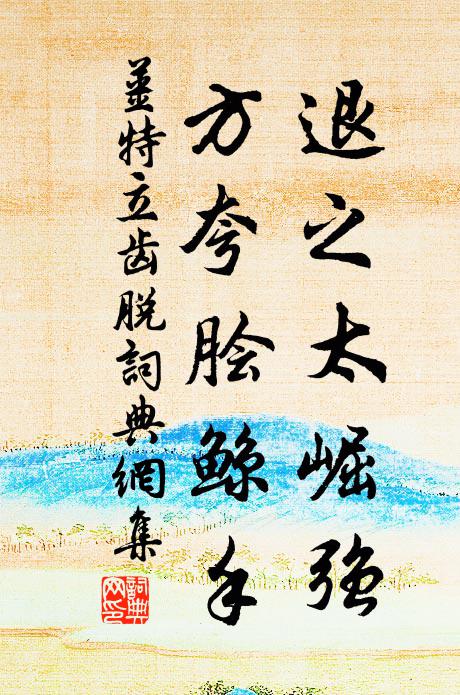 退之太崛强
方夸脍鲸手
姜特立齿脱詞典網集
詞典